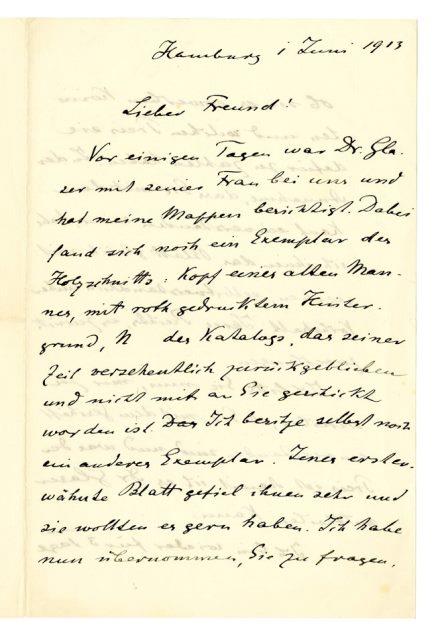 Hamburg 1 Juni 1913
Lieber Freund!
Vor einigen Tagen war Dr. Gla-
ser mit seiner Frau bei uns und
hat meine Mappen besichtigt. Dabei
fand sich noch ein Exemplar des
Holzschnitts: Kopf eines alten Man-
nes, mit roth gedrucktem Hinter-
grund, N des Katalogs, das seiner
Zeit versehentlich zurückgeblieben
und nicht mit an Sie geschickt
worden ist. Ich besitze selbst noch
ein anderes Exemplar. Jenes erster-
wähnte Blatt gefiel ihnen sehr und
sie wollten es gern haben. Ich habe
nun übernommen, Sie zu fragen,